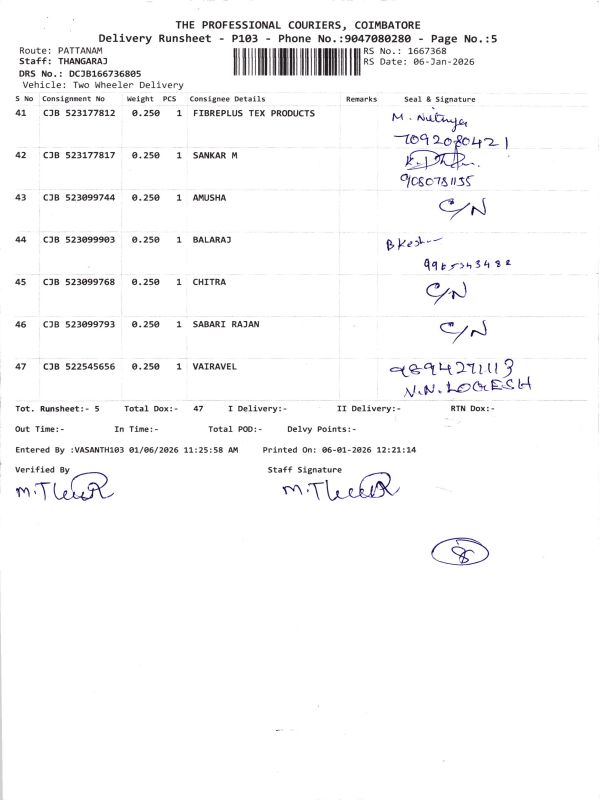 THE PROFESSIONAL COURIERS, COIMBATORE
Delivery Runsheet - P103 - Phone No.:9047080280 - Page No.:5
Route: PATTANAM
RS No.: 1667368
Staff: THANGARAJ
RS Date: 06-Jan-2026
DRS No.: DCJB166736805
Vehicle: Two Wheeler Delivery
S No Consignment No Weight PCS Consignee Details Remarks Seal & Signature
41 CJB 523177812 0.250 1 FIBREPLUS TEX PRODUCTS M. Nithya
7092080421
42 CJB 523177817 0.250 1 SANKAR M
9080781135
43 CJB 523099744 0.250 1 AMUSHA C/N
44 CJB 523099903 0.250 1 BALARAJ
45 CJB 523099768 0.250 1 CHITRA C/N
46 CJB 523099793 0.250 1 SABARI RAJAN C/N
47 CJB 522545656 0.250 1 VAIRAVEL 9894271113
N.N. LOGESH
Tot. Runsheet:- 5 Total Dox:- 47 I Delivery:- II Delivery:- RTN Dox:-
Out Time:- In Time:- Total POD:- Delvy Points:-
Entered By :VASANTH103 01/06/2026 11:25:58 AM Printed On: 06-01-2026 12:21:14
Verified By Staff Signature